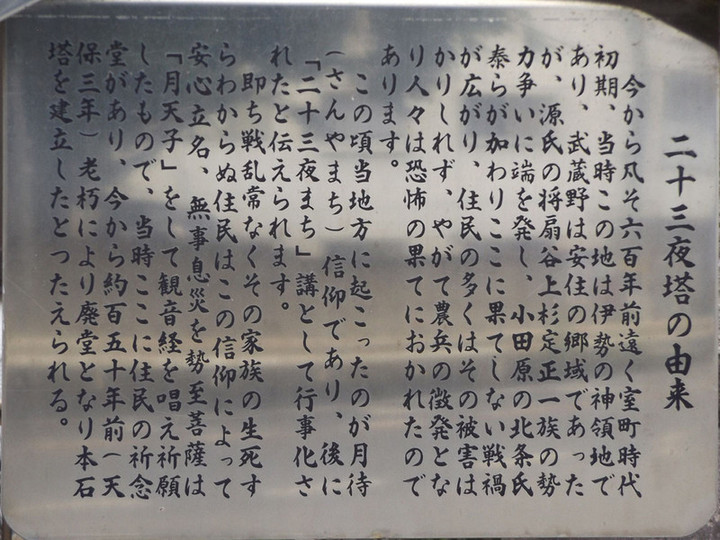 二十三夜塔の由来
今から凡そ六百年前遠く室町時代
初期、当時この地は伊勢の神領地で
あり、武蔵野は安住の郷域であった
が、源氏の将扇谷上杉定正一族の勢
力争いに端を発し、小田原の北条氏
泰らが加わりここに果てしない戦禍
が広がり、住民の多くはその被害は
かりしれず、やがて農兵の徴発とな
り人々は恐怖の果てにおかれたので
あります。
この頃当地方に起こったのが月待
(さんやまち)信仰であり、後に
「二十三夜まち」講として行事化さ
れたと伝えられます。
即ち戦乱常なくその家族の生死す
らわからぬ住民はこの信仰によって
安心立名、無事息災を勢至菩薩は
「月天子」をして観音経を唱え祈願
したもので、当時ここに住民の祈念
堂があり、今から約百五十年前(天
保三年)老朽により廃堂となり本石
塔を建立したとつたえられる。